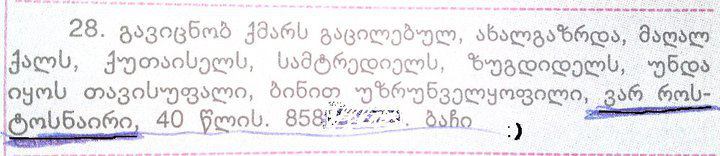 28. გავიცნობ ქმარს გაცილებულ, ახალგაზრდა, მაღალ
ქალს, ქუთაისელს, სამტრედიელს, ზუგდიდელს, უნდა
იყოს თავისუფალი, ბინით უზრუნველყოფილი, ვარ როს-
ტოსნაირი, 40 წლის. 858 . ბაჩი :)